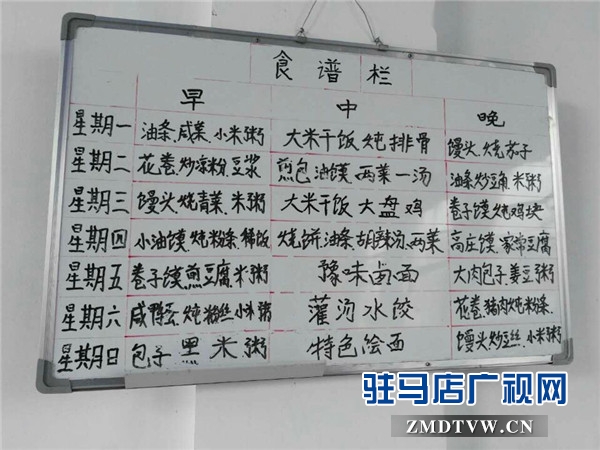 食谱栏
早 中 晚
星期一 油条.咸菜.小米粥 大米干饭 炖排骨 馒头.烧茄子
星期二 花卷.炒凉粉.豆浆 煎包油馍.两菜一汤 油条炒豆腐.米粥
星期三 馒头烧青菜.米粥 大米干饭 大盘鸡 卷子馍炖鸡块
星期四 小油馍.炖粉条 稀饭 烧饼.油条.胡辣汤.两菜 高庄馍.家常豆腐
星期五 卷子馍煎豆腐.米粥 豫味卤面 大肉包子.姜豆粥
星期六 咸鸭蛋.炖粉丝小米粥 灌汤水饺 花卷.猪肉炖粉条.
星期日 包子 黑米粥 特色烩面 馒头炒豆丝.小米粥
驻马店广视网
ZMDTVW.CN